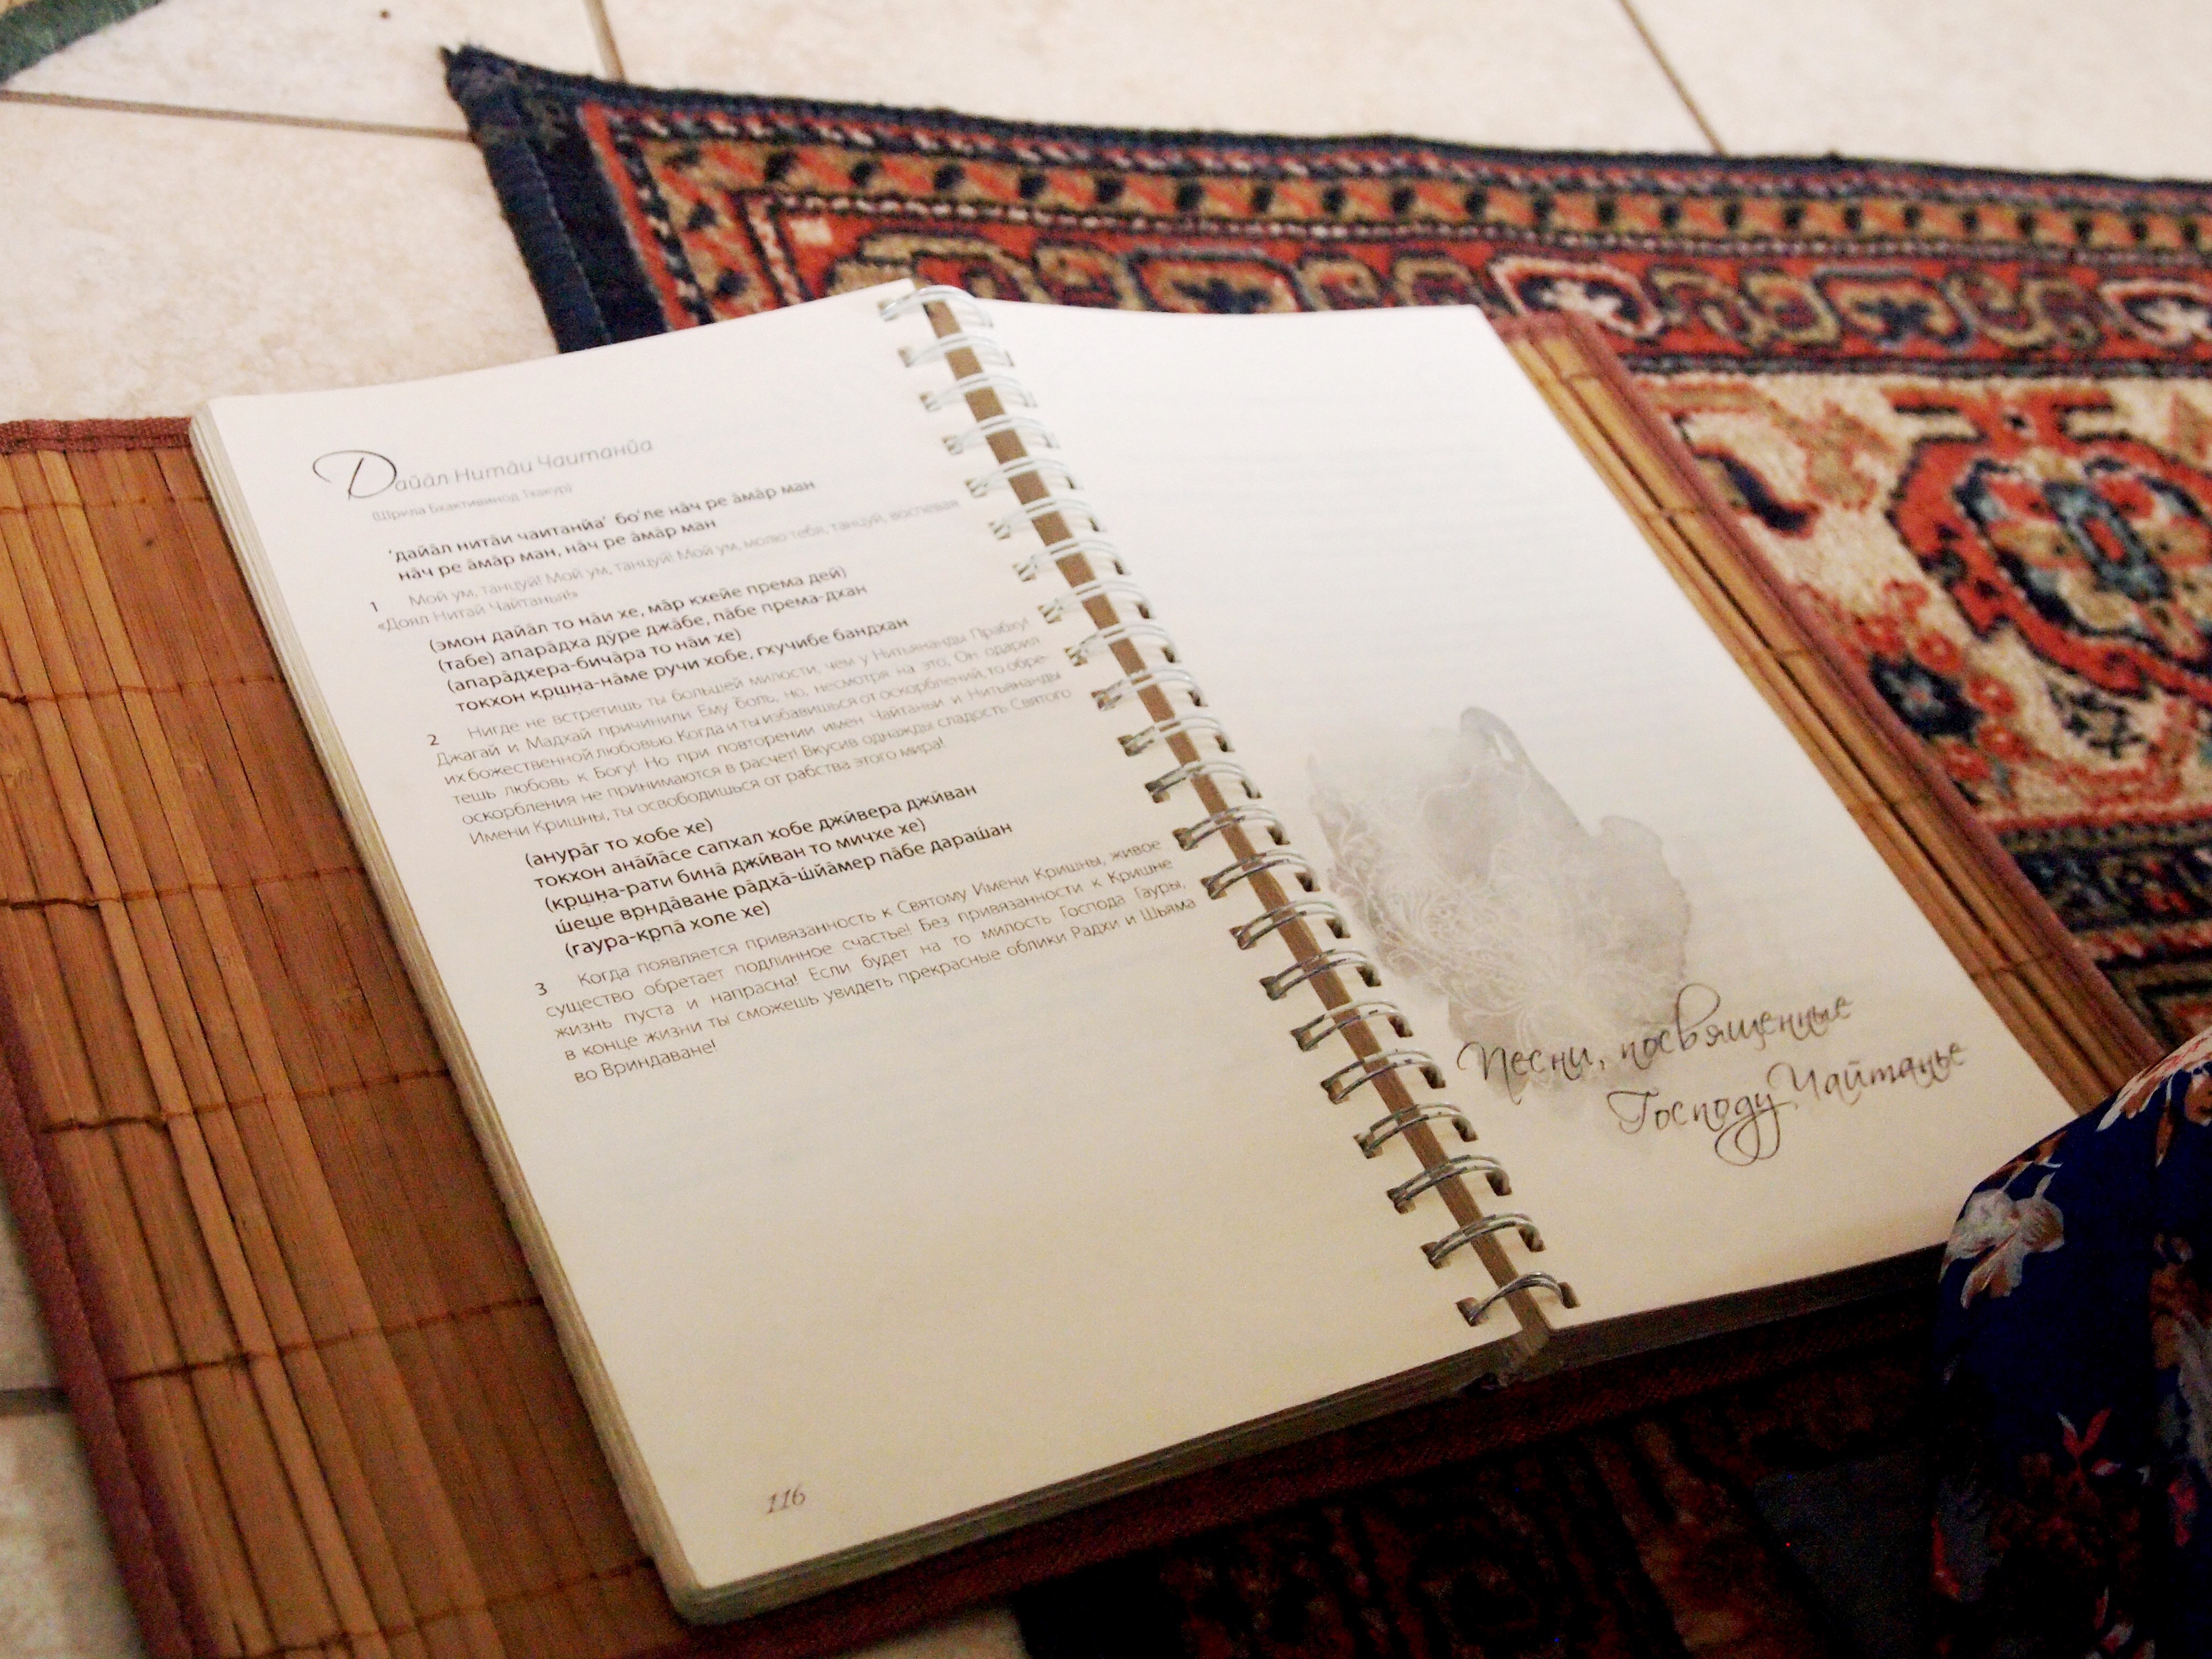 Дайа̄л Нита̄и Чаитанйа
(Шрила Бхактивинод Тхакур)
'дайа̄л нита̄и чаитанйа' бо'ле на̄ч ре а̄ма̄р ман
на̄ч ре а̄ма̄р ман, на̄ч ре а̄ма̄р ман
1 Мой ум, танцуй! Мой ум, танцуй! Мой ум, молю тебя, танцуй, воспевая
«Доял Нитай Чайтанья!»
(эмон дайа̄л то на̄и хе, ма̄р кхейе према дей)
(табе) апара̄дха дӯре джа̄бе, па̄бе према-дхан
(апара̄дхера-бича̄ра то на̄и хе)
токхон кр̣шн̣а-на̄ме ручи хобе, гхучибе бандхан
2 Нигде не встретишь ты большей милости, чем у Нитьянанды Прабху!
Джагай и Мадхай причинили Ему боль, но, несмотря на это, Он одарил
их божественной любовью. Когда и ты избавишься от оскорблений, то обре-
тешь любовь к Богу! Но при повторении имен Чайтаньи и Нитьянанды
оскорбления не принимаются в расчет! Вкусив однажды сладость Святого
Имени Кришны, ты освободишься от рабства этого мира!
(анура̄г то хобе хе)
токхон ана̄йа̄се сапхал хобе джӣвера джӣван
(кр̣шн̣а-рати бина̄ джӣван то мичхе хе)
ш́еше вр̣нда̄ване ра̄дха̄-ш́йа̄мер па̄бе дараш́ан
(гаура-кр̣па̄ холе хе)
3 Когда появляется привязанность к Святому Имени Кришны, живое
существо обретает подлинное счастье! Без привязанности к Кришне
жизнь пуста и напрасна! Если будет на то милость Господа Гауры,
в конце жизни ты сможешь увидеть прекрасные облики Радхи и Шьяма
во Вриндаване!
116
Песни, посвященные
Господу Чайтанье